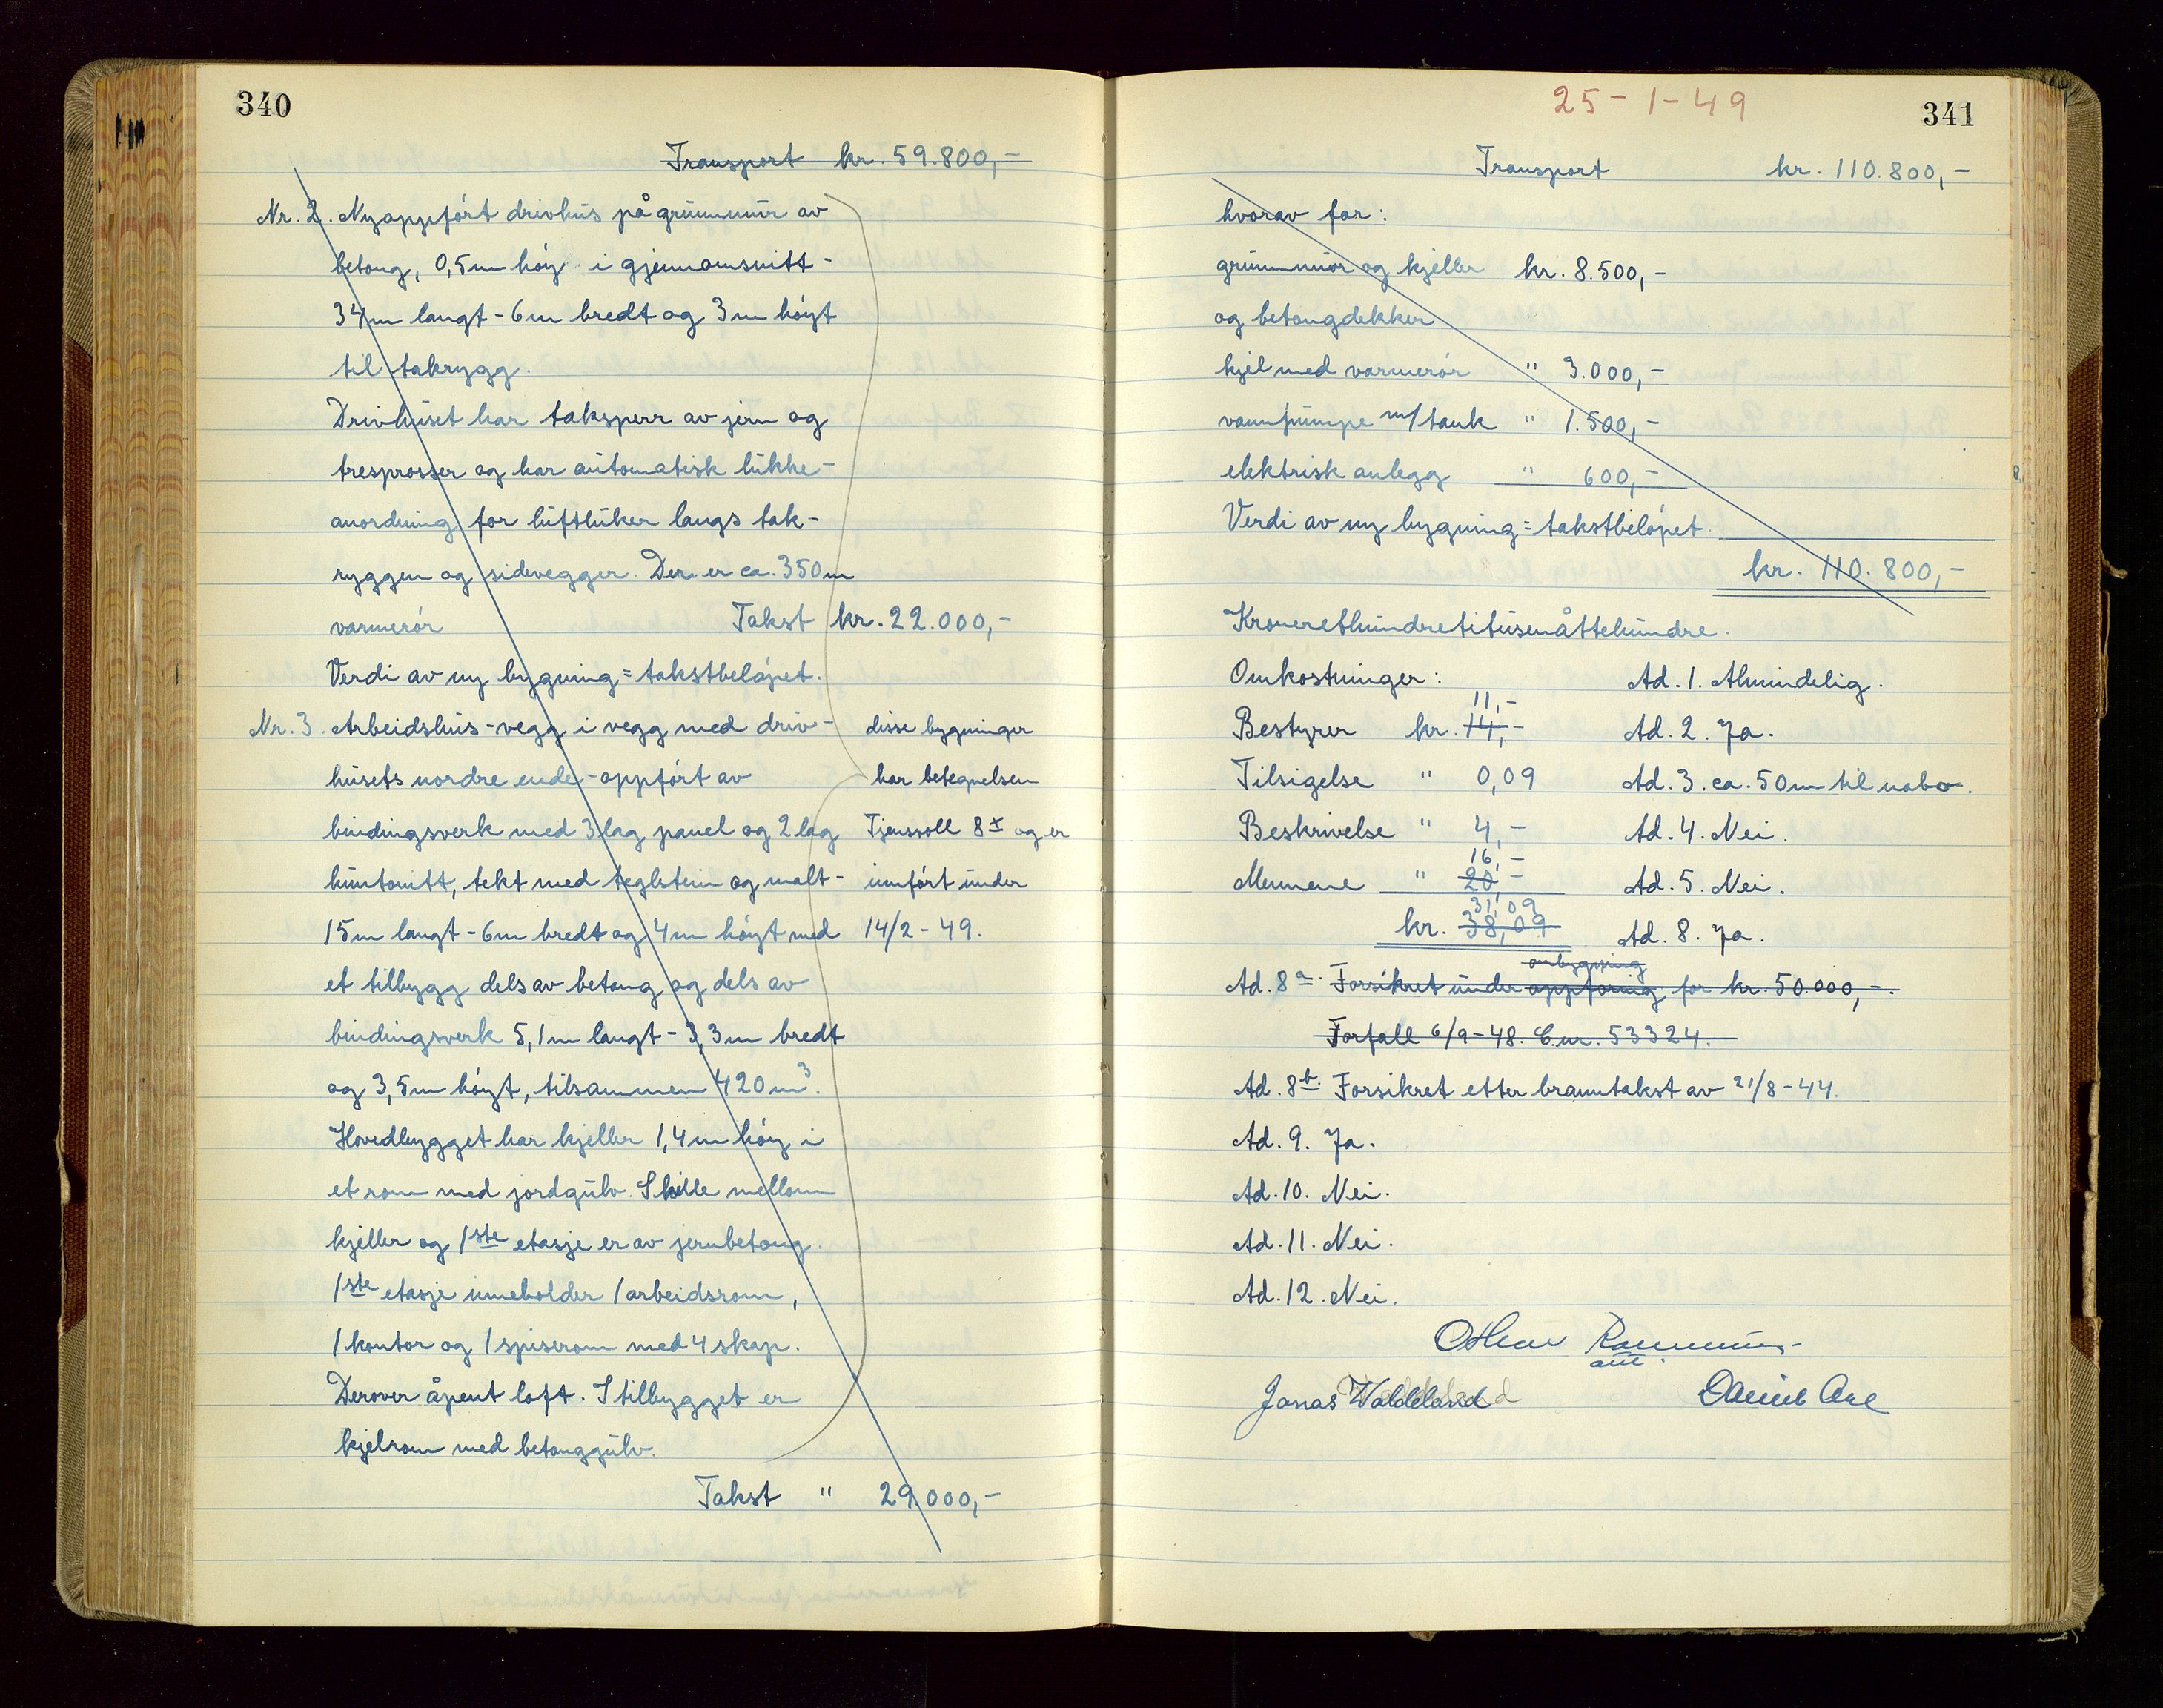 340
Transport kr. 59.800,-
Nr. 2. Nyoppført drivhus på grunnmur av
betong, 0,5m høy i gjennomsnitt -
34m langt - 6m bredt og 3m høyt
til takrygg.
Drivhuset har taksperr av jern og
tresprosser og har automatisk lukke-
anordning for luftluker langs tak-
ryggen og sidevegger. Der er ca. 350m
varmerør Takst kr. 22.000,-
Verdi av ny bygning = takstbeløpet.
Nr. 3. Arbeidshus - vegg i vegg med driv-
husets nordre ende - oppført av
bindingsverk med 3 lag panel og 2 lag
huntonitt, tekt med teglstein og malt -
15m langt - 6m bredt og 4m høyt med
et tilbygg dels av betong og dels av
bindingsverk 5,1m langt - 3,3m bredt
og 3,5m høyt, tilsammen 420m³.
Hovedbygget har kjeller 1,4m høy i
et rom med jordgulv. Skille mellom
kjeller og 1ste etasje er av jernbetong.
1ste etasje inneholder 1 arbeidsrom,
1 kontor og 1 spiserom med 4 skap.
Derover åpent loft. I tilbygget er
kjelrom med betonggulv.
Takst " 29.000,-
disse bygninger
har betegnelsen
Tjensvoll 8x og er
innført under
14/2 - 49.
25-1-49
341
Transport kr. 110.800,-
hvorav for:
grunnmur og kjeller kr. 8.500,-
og betongdekker
kjel med varmerør " 3.000,-
vannpumpe m/tank " 1.500,-
elektrisk anlegg " 600,-
Verdi av ny bygning = takstbeløpet.
kr. 110.800,-
Kroneretthundretitusenåttehundre.
Omkostninger: Ad. 1. Almindelig.
11,-
Bestyrer kr. 14,- Ad. 2. Ja.
Tilsigelse " 0,09 Ad. 3. ca. 50m til nabo.
Beskrivelse " 4,- Ad. 4. Nei.
16,-
Mennene " 20,- Ad. 5. Nei.
31,09
kr. 38,09 Ad. 8. Ja.
ombygning
Ad. 8a. Forsikret under oppføring for kr. 50.000,-.
Forfall 6/9-48. C.nr. 53324.
Ad. 8b. Forsikret etter branntakst av 21/8-44.
Ad. 9. Ja.
Ad. 10. Nei.
Ad. 11. Nei.
Ad. 12. Nei.
Jonas Waldeland